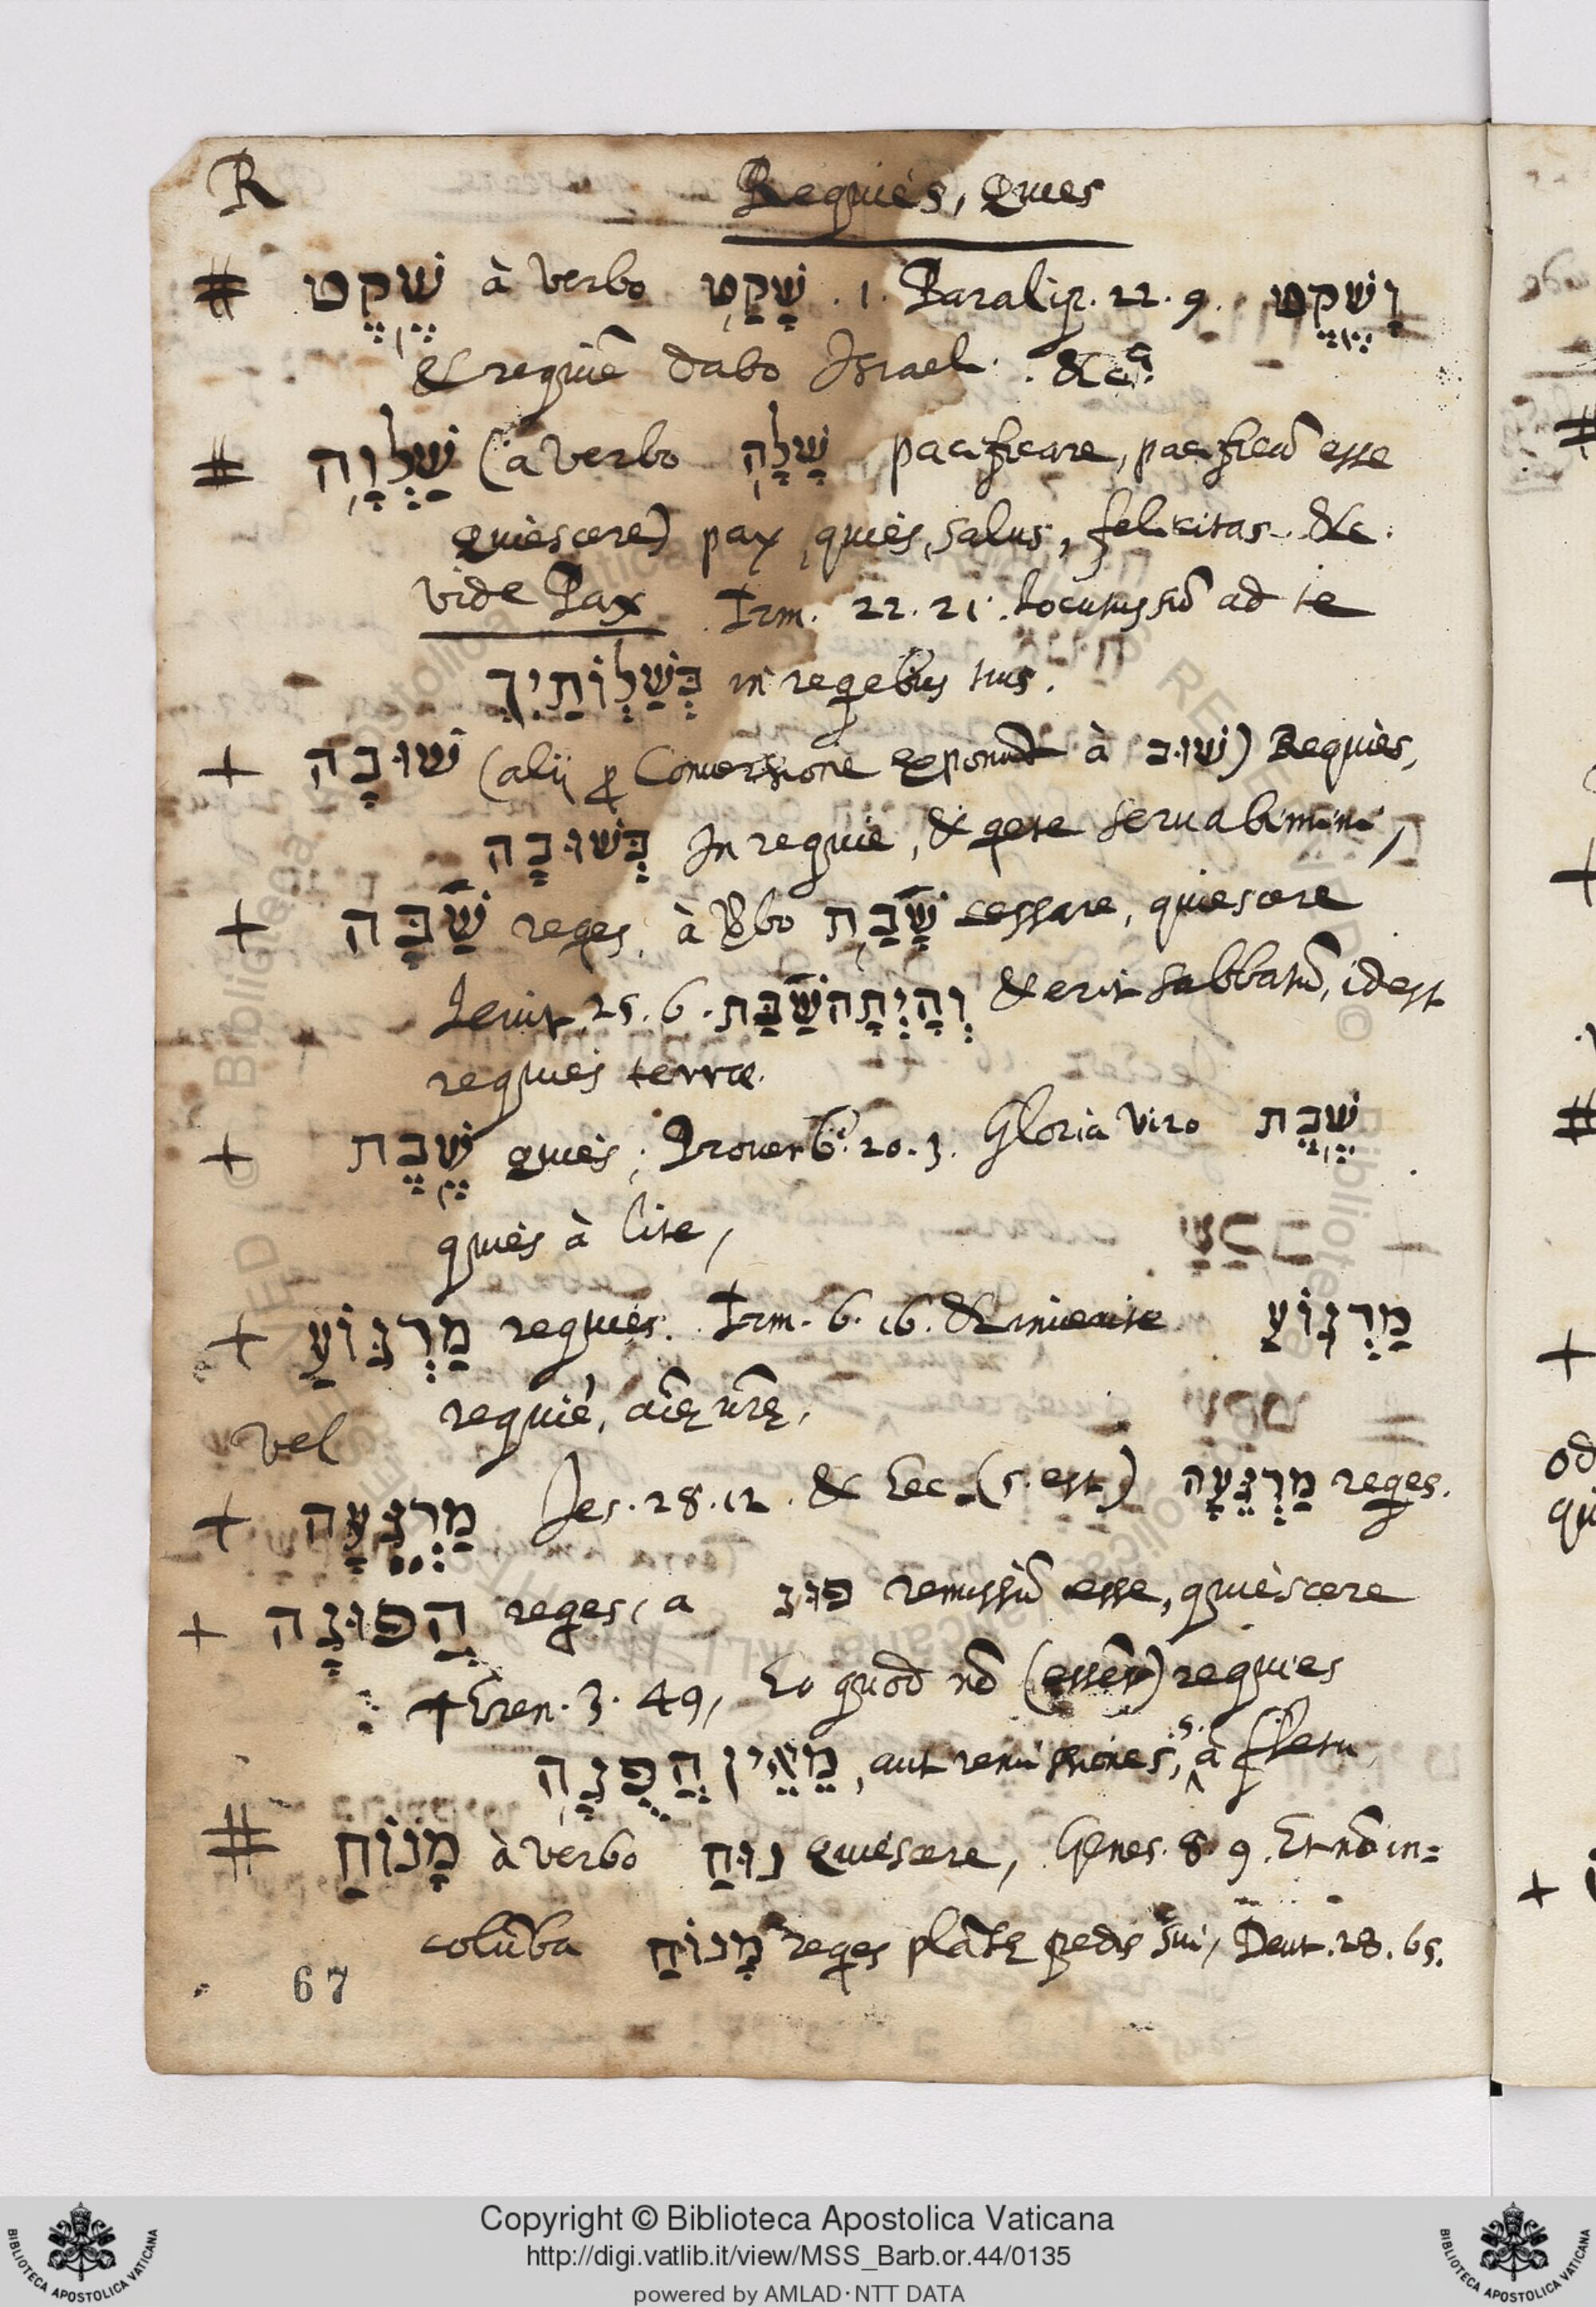 R
Requiès, Quies
# שֶׁקֶט à verbo שָׁקַט . 1. Paralip. 22. 9. וָשֶׁקֶט
& requiē dabo Israel. &cª.
# שַׁלְוָה (à verbo שָׁלָה pacificare, pacificū esse
quièscere) pax, quiès, salus, felicitas. &c.
vide Pax Irm. 22. 21. locutus sū ad te
בְּשַׁלְוֹתַיִךְ in reqebus tuis.
+ שׁוּבָה (alij ꝓ Conuersione exponūt à שׁוּב) Requiès,
בְּשׁוּבָה In requie, & qete seruabimini,
+ שַׁבָּה reqes, à Vbo שָׁבַת cessare, quiescere
Leuit. 25. 6. וְהָיְתָה שַׁבַּת & erit sabbatū, idest
requies terræ.
+ שֶׁבֶת quiès; Prouerb. 20. 3. Gloria viro שֶׁבֶת
quiès à lite,
+ מַרְגּוֹעַ requies. Irm. 6. 16. & inienite מַרְגּוֹעַ
requiē, aīę vr̄ę,
vel
+ מַרְגֵּעָה Jes. 28. 12. & hec (s. est) מַרְגֵּעָה reqes.
+ הֲפוּגָה reqes, a פוּג remissū esse, quièscere
+ Tren. 3. 49, Eo quod nō (essēt) requies
מֵאֵין הֲפֻגֹה, aut remissiones, s. à fletu,
# מָנוֹחַ à verbo נוּחַ Quiescere, Genes. 8. 9. Et nō in=
colūba מָנוֹחַ reqes plātę pedis sui, Deut. 28. 65.
67
Copyright © Biblioteca Apostolica Vaticana
http://digi.vatlib.it/view/MSS_Barb.or.44/0135
powered by AMLAD·NTT DATA
BIBLIOTECA APOSTOLICA VATICANA
BIBLIOTECA APOSTOLICA VATICANA